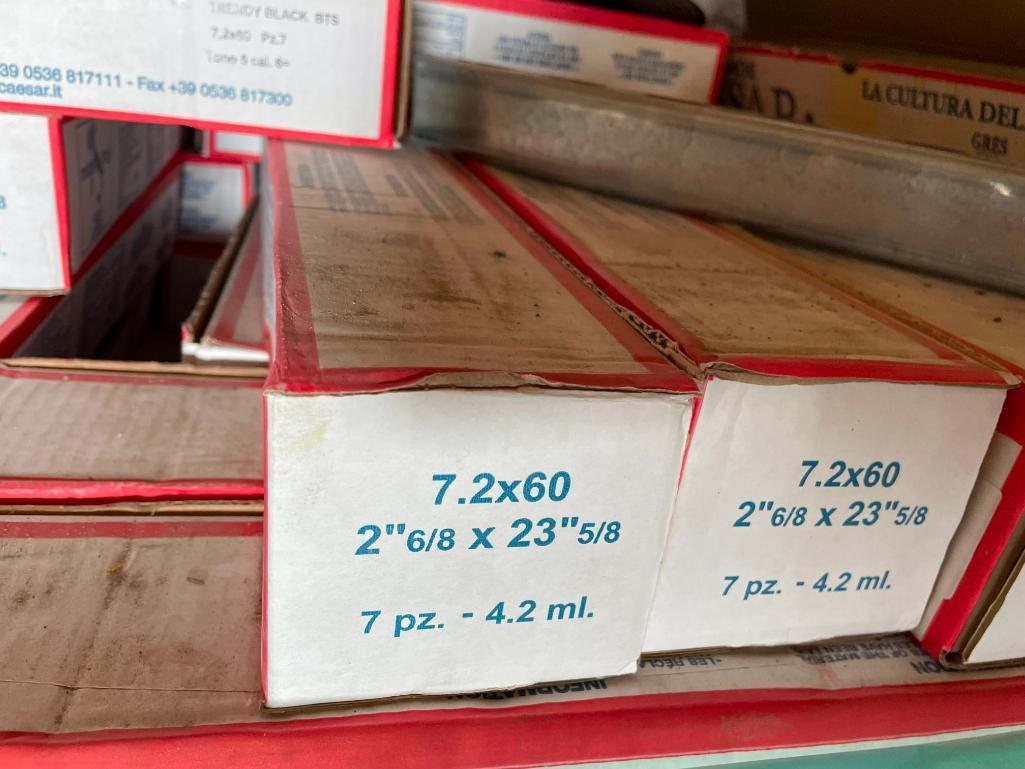 TRENDY BLACK BTS
7,2x60 Pz.7
Tono 5 cal. 6=
39 0536 817111 - Fax +39 0536 817300
caesar.it
LA CULTURA DEL
GRES
7.2x60
2"6/8 x 23"5/8
7 pz. - 4.2 ml.
7.2x60
2"6/8 x 23"5/8
7 pz. - 4.2 ml.